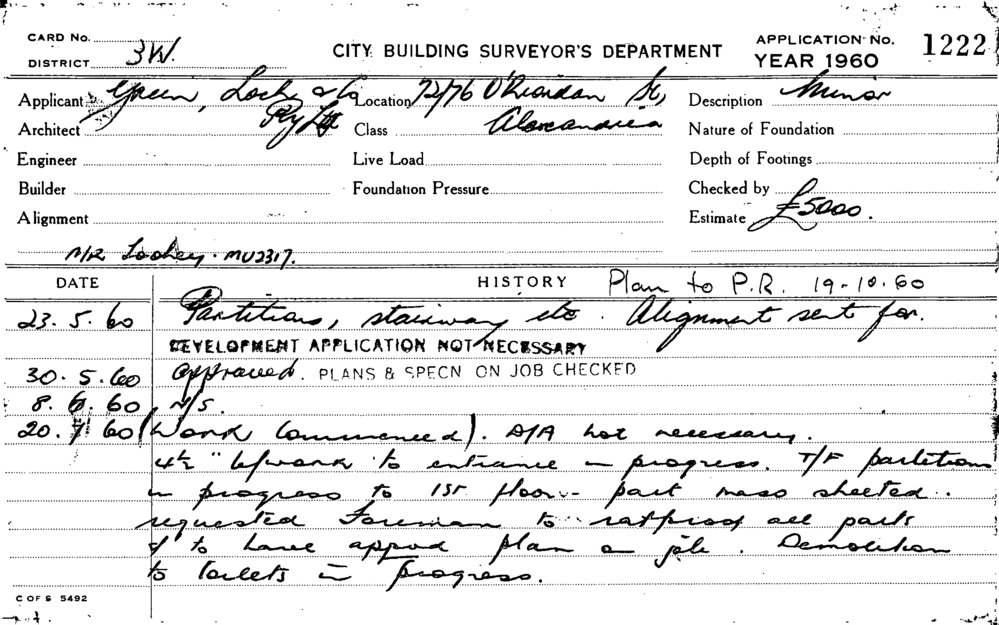 CARD No.
DISTRICT 3W.
CITY BUILDING SURVEYOR'S DEPARTMENT
APPLICATION No. 1222
YEAR 1960
Applicant Green, & Co Pty Ltd
Location 72/76 O'Riordan St, Alexandria
Description Minor
Architect
Class
Nature of Foundation
Engineer
Live Load
Depth of Footings
Builder
Foundation Pressure
Checked by
Alignment
Estimate £5000.
MU2317.
DATE
HISTORY Plan to P.R. 19-10.60
23.5.60 Partitions, stairway etc. Alignment sent for.
DEVELOPMENT APPLICATION NOT NECESSARY
30.5.60 Approved. PLANS & SPECN ON JOB CHECKED
8.6.60 N/S.
20.7.60 (Work Commenced). D/A not necessary.
4½" b/work to entrance in progress. T/F partitions
in progress to 1st floor - part maso sheeted.
requested Foreman to ratproof all parts
& to have approd plan on job. Demolition
to toilets in progress.
C OF S 5492